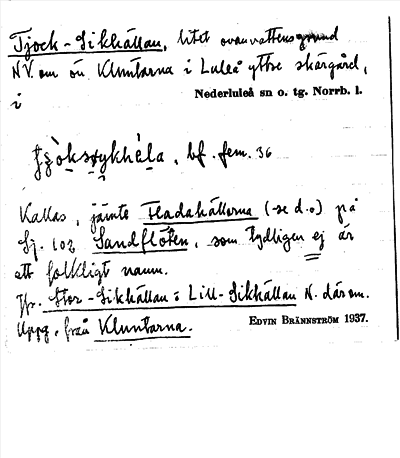 Tjock-Sikhällan, litet ovanvattensgrund
NV. om ön Kluntarna i Luleå yttre skärgård,
i
Nederluleå sn o. tg. Norrb. l.
bf. fem. 36
Kallas, jämte Fladahällorna (se d.o) på
Sj. 102 Sandflöten, som tydligen ej är
ett folkligt namn.
Jfr. Stor-Sikhällan o Lill-Sikhällan N. därom.
Uppg. från Kluntarna.
EDVIN BRÄNNSTRÖM 1937.